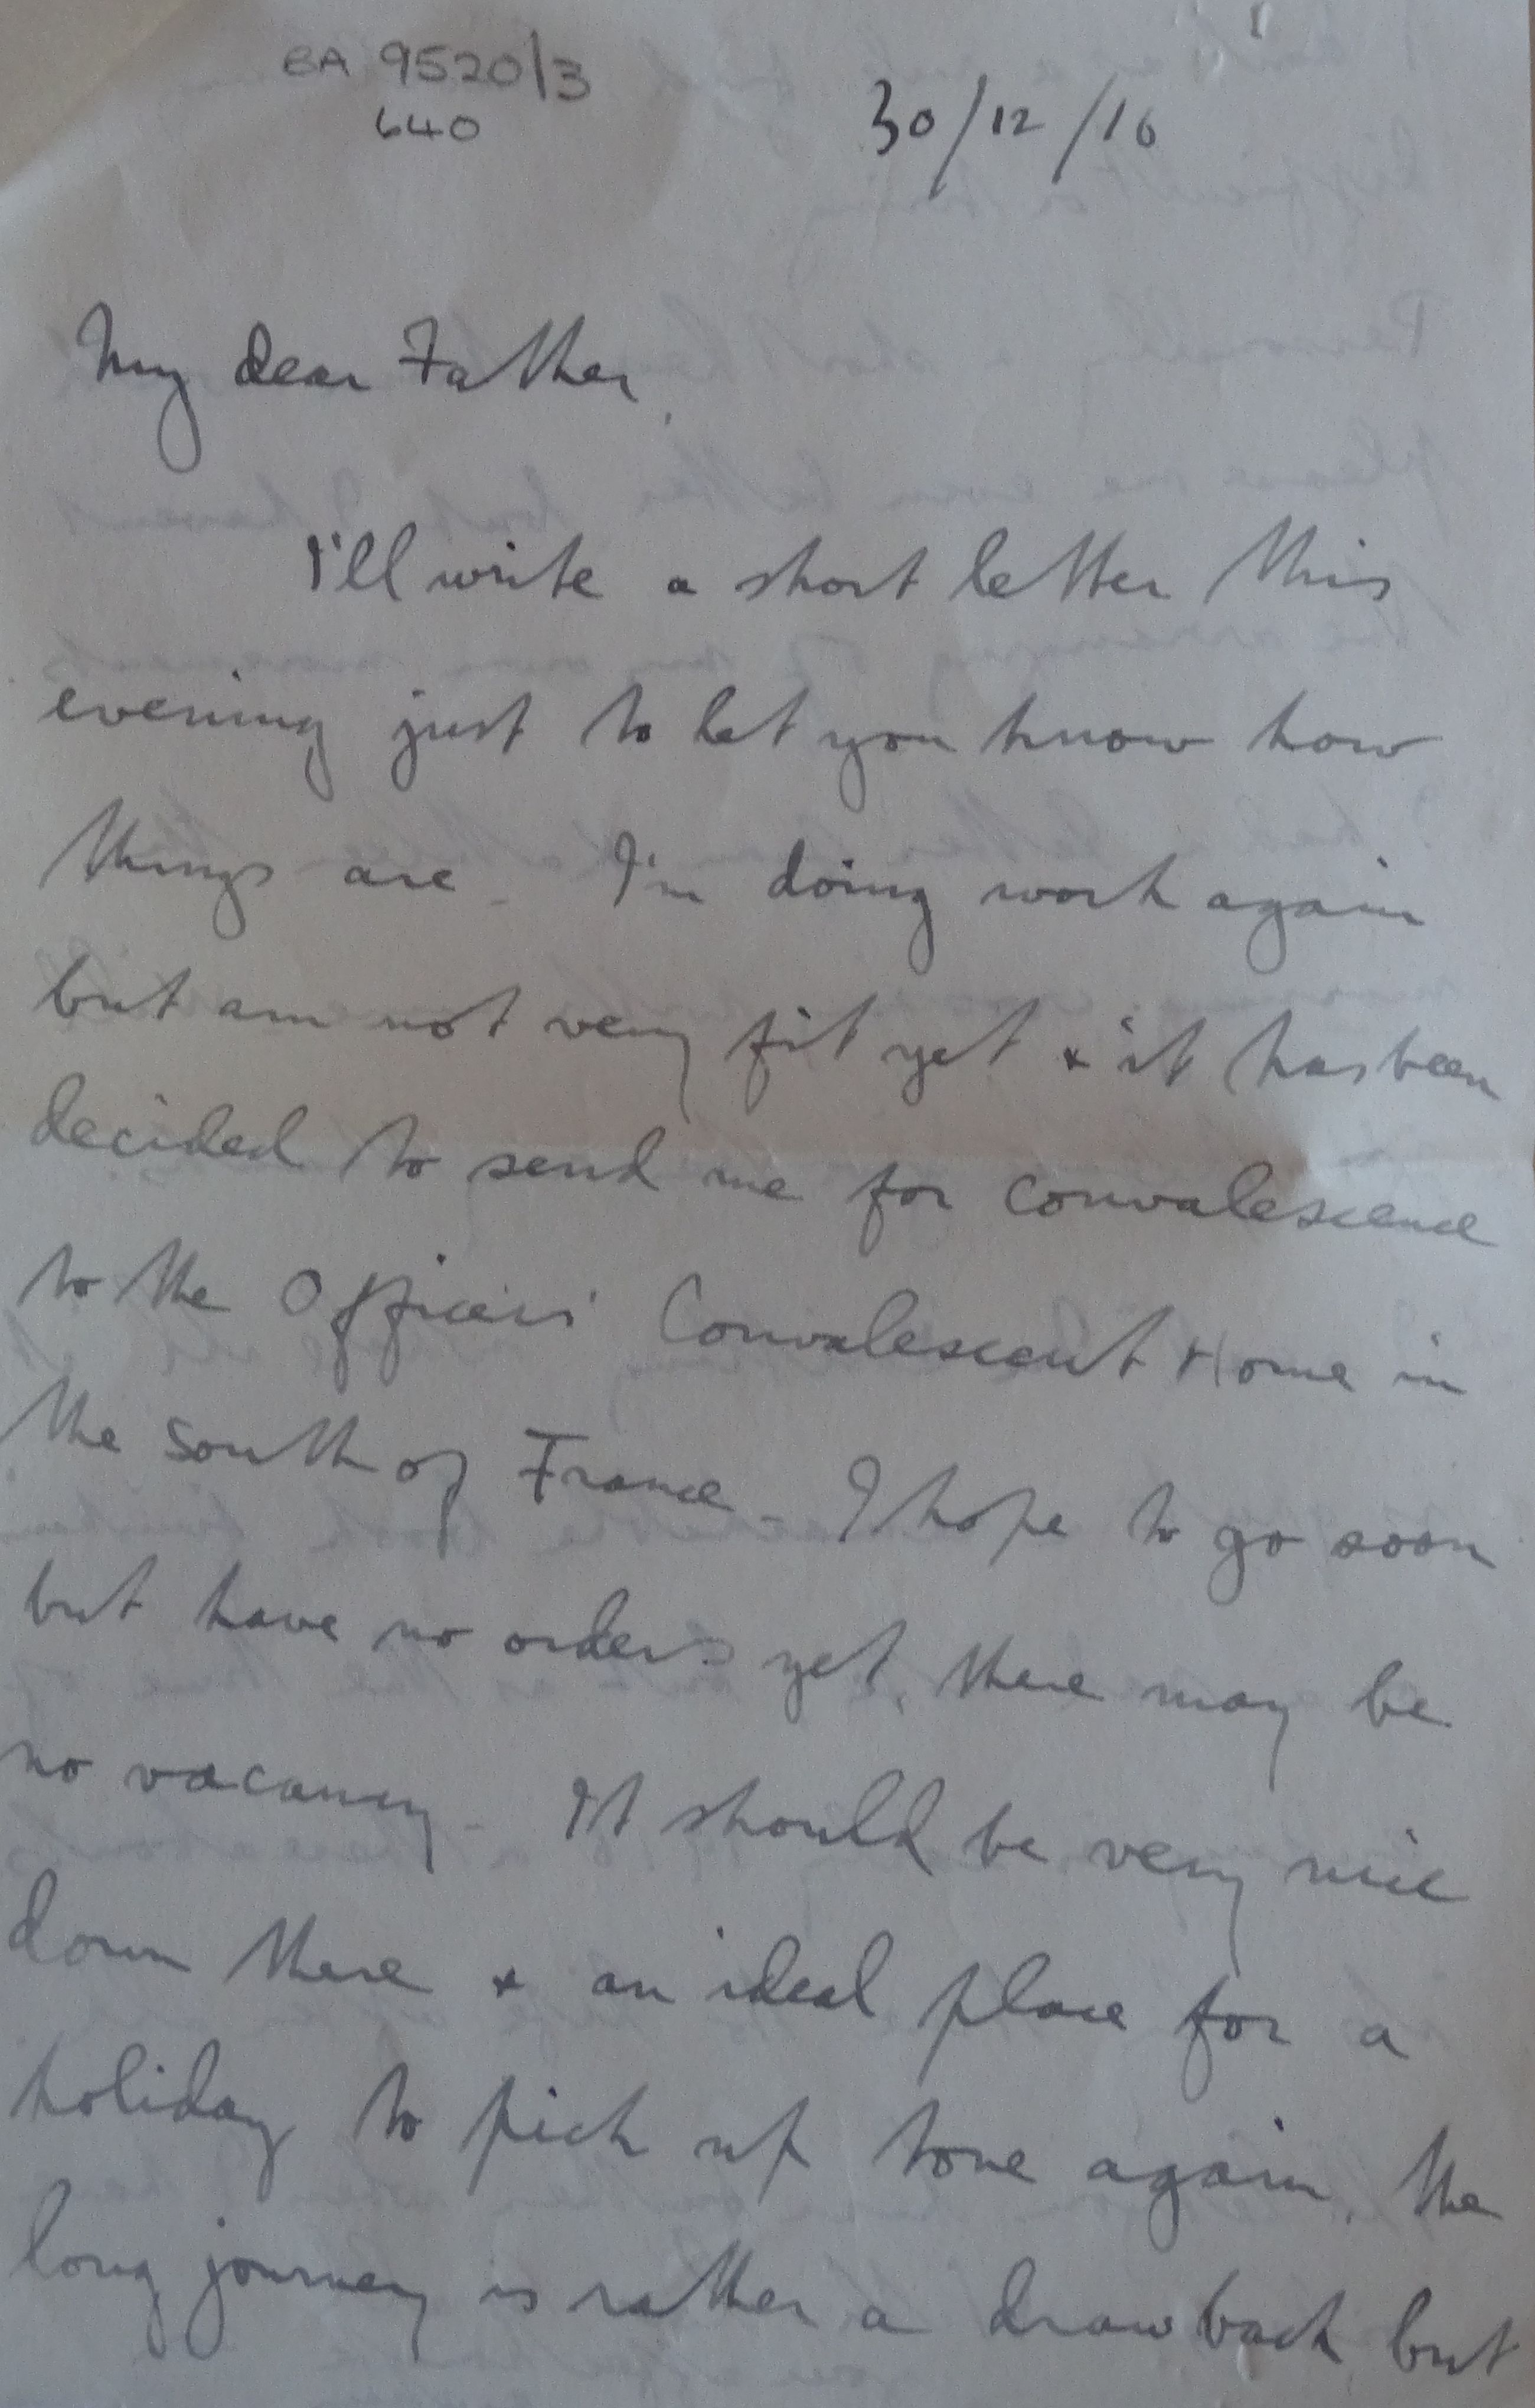 BA 9520/3
640
30/12/16
My dear Father,
I'll write a short letter this
evening just to let you know how
things are - I'm doing work again
but am not very fit yet & it has been
decided to send me for convalescence
to the Officers' Convalescent Home in
the south of France - I hope to go soon
but have no orders yet, there may be
no vacancy - It should be very nice
down there & an ideal place for a
holiday to pick up tone again. The
long journey is rather a drawback but